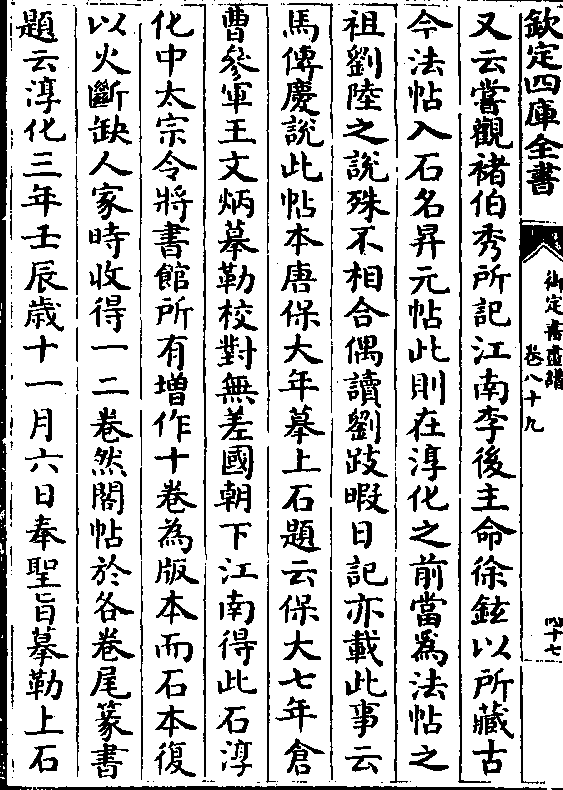 欽定四庫全書
御定書畫譜
卷八十九
四十七
又云嘗觀褚伯秀所記江南李後主命徐鉉以所藏古
今法帖入石名昇元帖此則在淳化之前當爲法帖之
祖劉陸之說殊不相合偶讀劉跂暇日記亦載此事云
馬傳慶說此帖本唐保大年摹上石題云保大七年倉
曹參軍王文炳摹勒校對無差國朝下江南得此石淳
化中太宗令將書館所有增作十卷為版本而石本復
以火斷缺人家時收得一二卷然閣帖於各卷尾篆書
題云淳化三年壬辰歲十一月六日奉聖旨摹勒上石